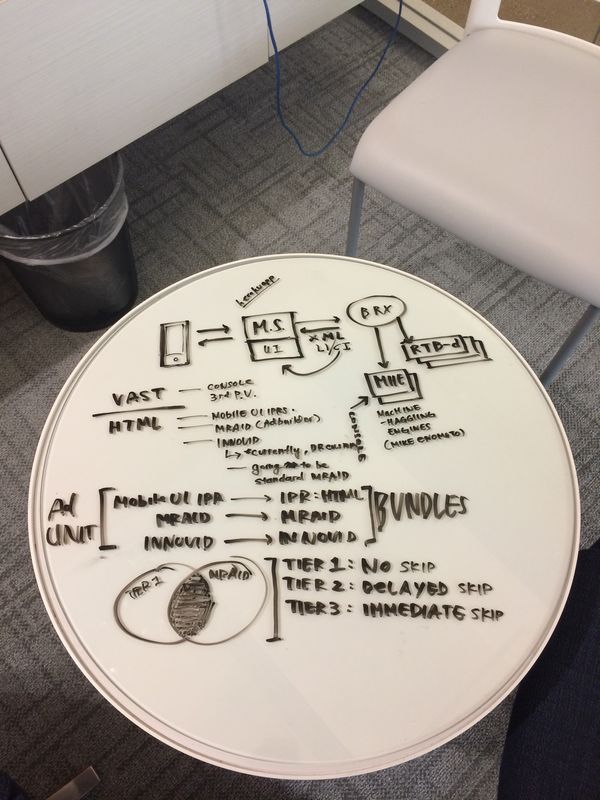 M.S.
UI
XML
BRX
RTB-d
MHE
MACHINE
-HAGGLING
ENGINES
(MIKE ENOMOTO)
VAST — CONSOLE
3rd P.V.
HTML — MOBILE UI IPRS.
— MRAID
— INNOVID
↳ *currently,
— going to be
standard MRAID
Ad UNIT
MOBILE UI IPR → IPR: HTML
MRAID → MRAID
INNOVID → INNOVID
BUNDLES
TIER 1
MRAID
TIER 1: NO SKIP
TIER 2: DELAYED SKIP
TIER 3: IMMEDIATE SKIP